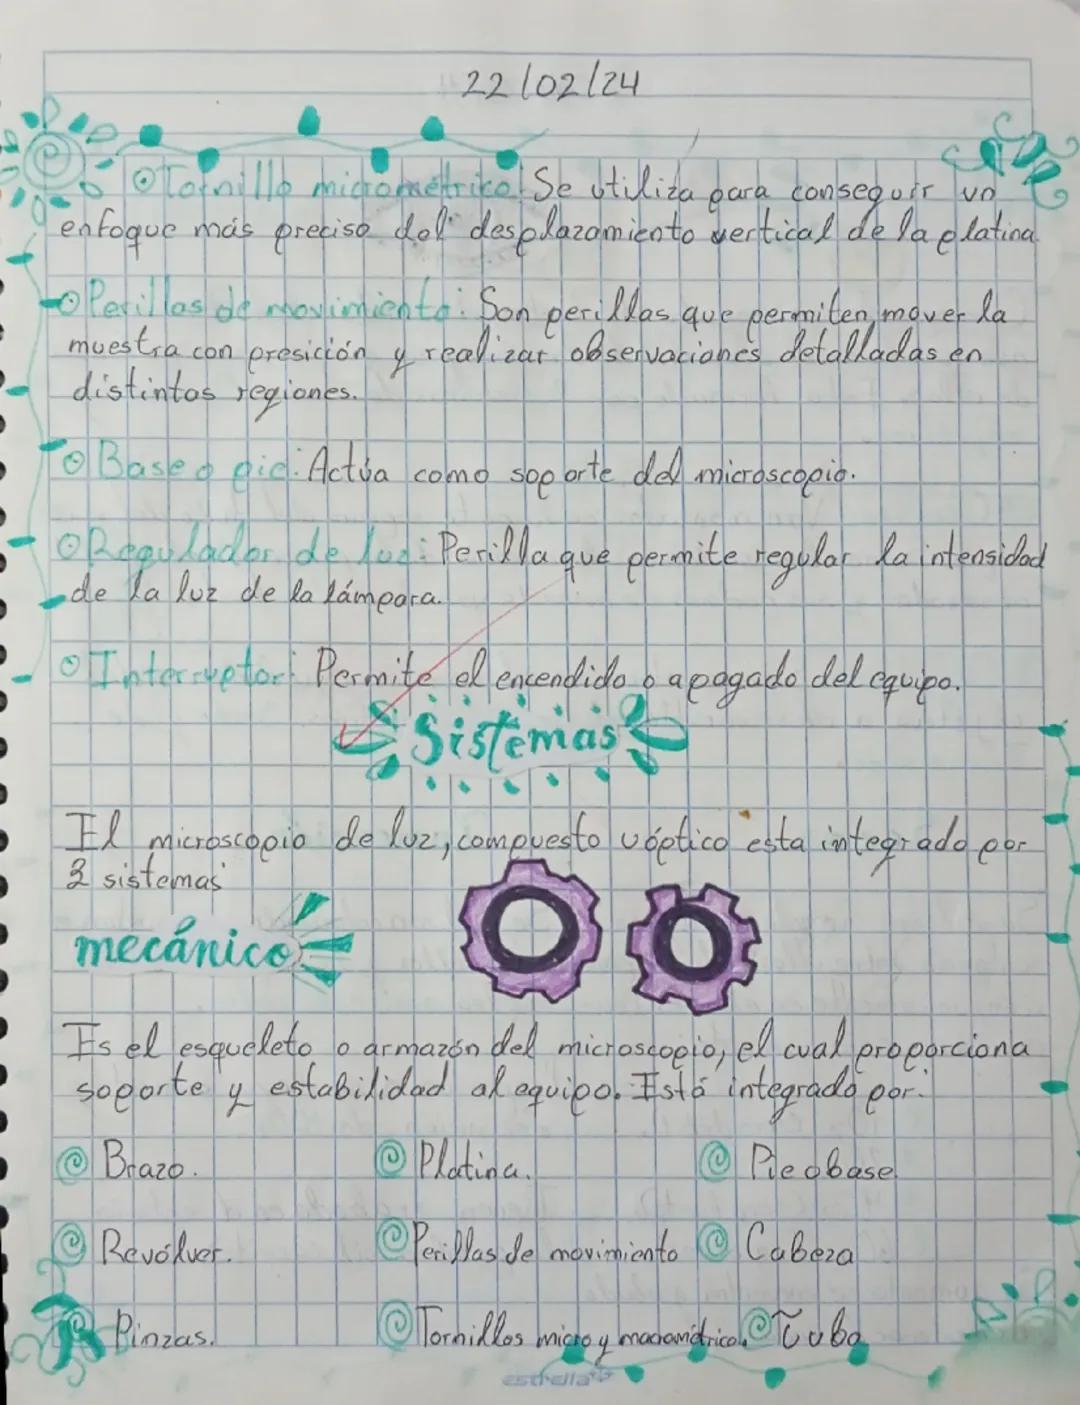 22/02/24
Tornillo micrométrico: Se utiliza para conseguir un
enfoque más preciso del desplazamiento vertical de la platina.
Perillas de movimiento: Son perillas que permiten mover la
muestra con presición y realizar observaciones detalladas en
distintas regiones.
Base o pie: Actúa como soporte del microscopio.
Regulador de luz: Perilla que permite regular la intensidad
de la luz de la lámpara.
Interruptor: Permite el encendido o apagado del equipo.
Sistemas
El microscopio de luz, compuesto u óptico esta integrado por
3 sistemas
mecánico
Es el esqueleto o armazón del microscopio, el cual proporciona
soporte y estabilidad al equipo. Está integrado por:
Brazo. Platina. Pie o base
Revólver. Perillas de movimiento Cabeza
Pinzas. Tornillos micro y macrométrico. Tubo
estrella